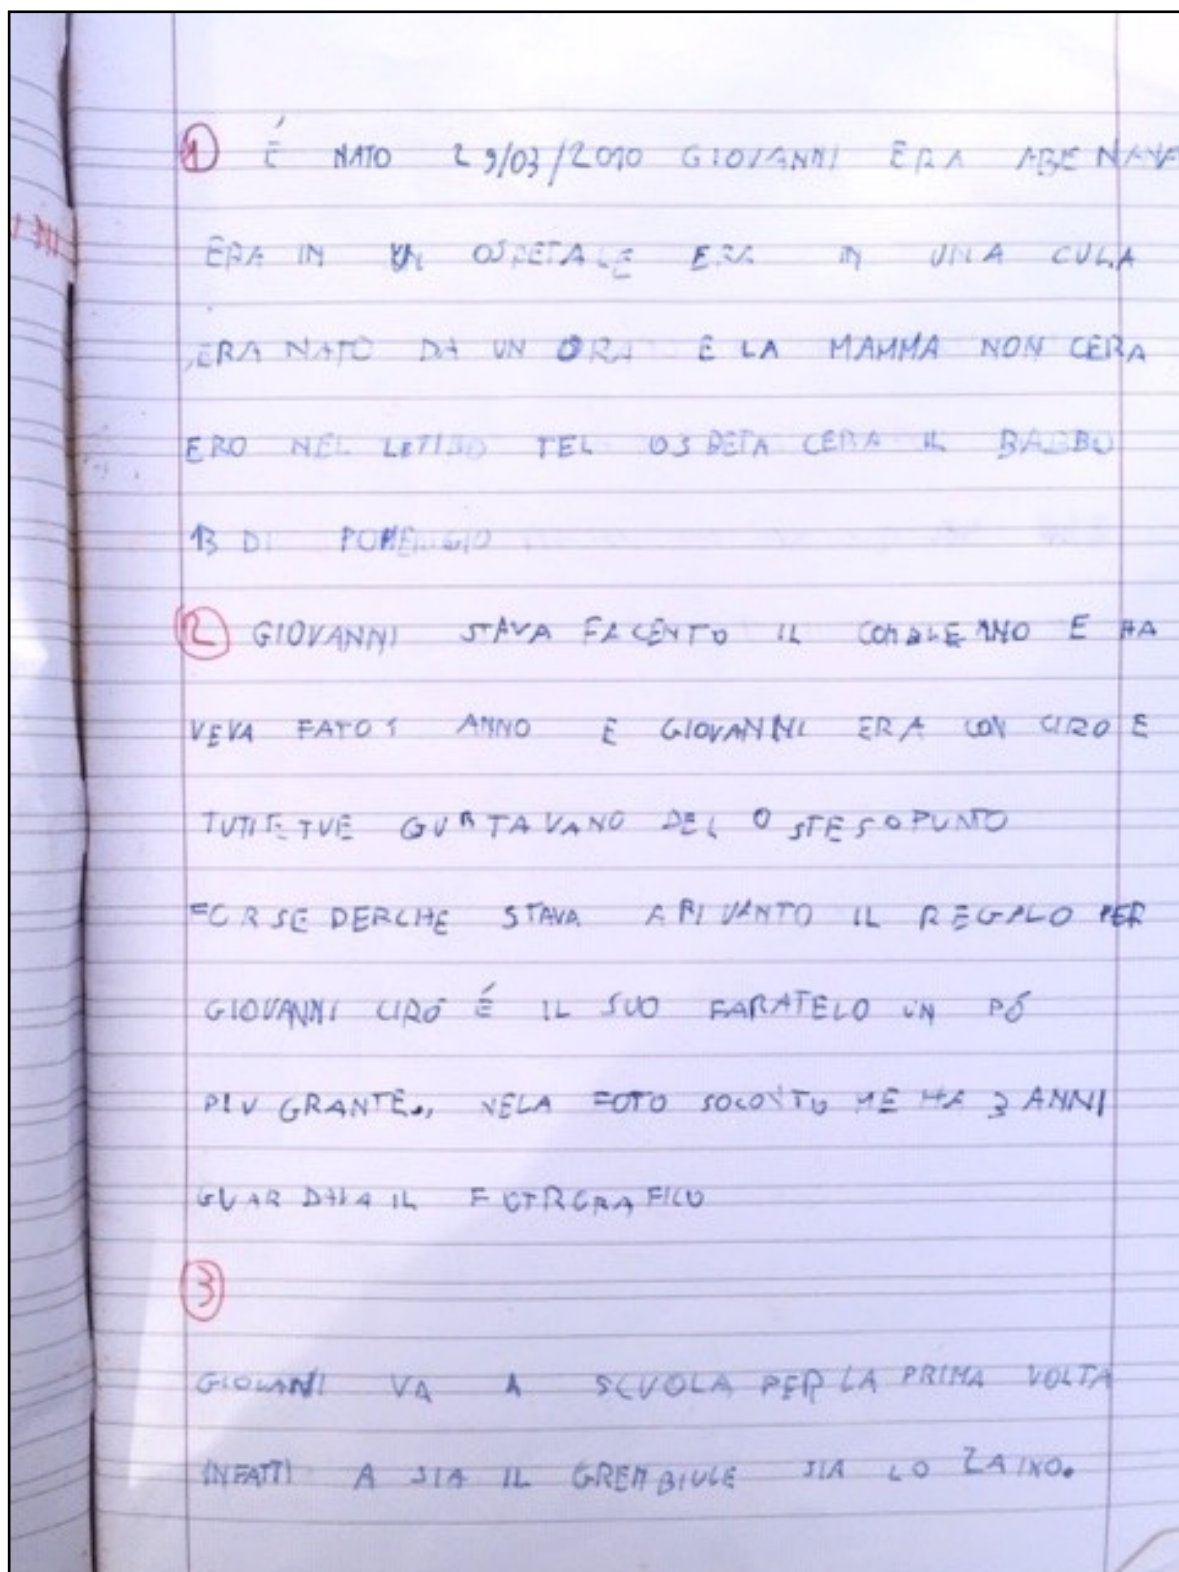 1 É NATO 29/03/2010 GIOVANNI ERA ABENANA
ERA IN UN OSPETALE ERA IN UNA CULA
ERA NATO DA UN ORA E LA MAMMA NON CERA
ERO NEL TEL OSBETA CERA IL BABBO
13 DI
2 GIOVANNI STAVA FACENTO IL E HA
VEVA FATO 1 ANNO E GIOVANNI ERA CON CIRO E
TUTIETUE GURTAVANO DEL O STESOPUNTO
FORSE DERCHE STAVA ARIVANTO IL REGALO PER
GIOVANNI CIRO É IL SUO FARATELO UN PÓ
PIU GRANTE., NELA FOTO SOCONTO ME HA 3 ANNI
GUARDAVA IL
3
GIOVANNI VA A SCUOLA PER LA PRIMA VOLTA
INFATTI A SIA IL GREMBIULE SIA LO ZAINO.